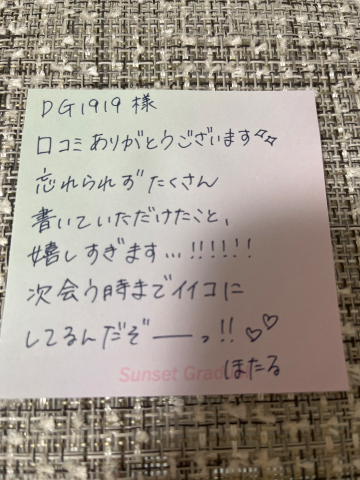 DG1919様
口コミありがとうございます✨
忘れられずたくさん
書いていただけたこと、
嬉しすぎます…!!!!!
次会う時までイイコに
してるんだぞ──っ!!♡♡
Sunset Grad
ほたる